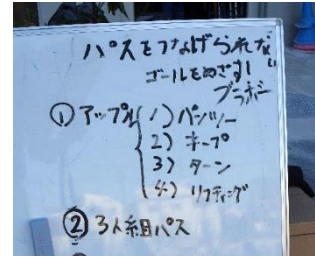 パスをつなげられない
ゴールをめざす!
ブラボー
① アップ 1) パンツー
2) キープ
3) ターン
4) リフティング
② 3人組パス